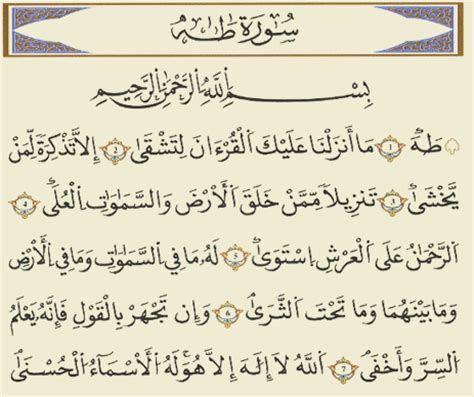 سُورَةُ طَهَ
بِسْمِ ٱللَّهِ ٱلرَّحْمَٰنِ ٱلرَّحِيمِ
طَهَ ١ مَا أَنزَلْنَا عَلَيْكَ ٱلْقُرْءَانَ لِتَشْقَىٰ ٢ إِلَّا تَذْكِرَةً لِّمَنْ
يَّخْشَىٰ ٣ تَنزِيلًا مِّمَّنْ خَلَقَ ٱلْأَرْضَ وَٱلسَّمَٰوَٰتِ ٱلْعُلَى ٤
ٱلرَّحْمَٰنُ عَلَى ٱلْعَرْشِ ٱسْتَوَىٰ ٥ لَهُۥ مَا فِي ٱلسَّمَٰوَٰتِ وَمَا فِي ٱلْأَرْضِ
وَمَا بَيْنَهُمَا وَمَا تَحْتَ ٱلثَّرَىٰ ٦ وَإِن تَجْهَرْ بِٱلْقَوْلِ فَإِنَّهُۥ يَعْلَمُ
ٱلسِّرَّ وَأَخْفَى ٧ ٱللَّهُ لَا إِلَٰهَ إِلَّا هُوَ لَهُ ٱلْأَسْمَآءُ ٱلْحُسْنَىٰ